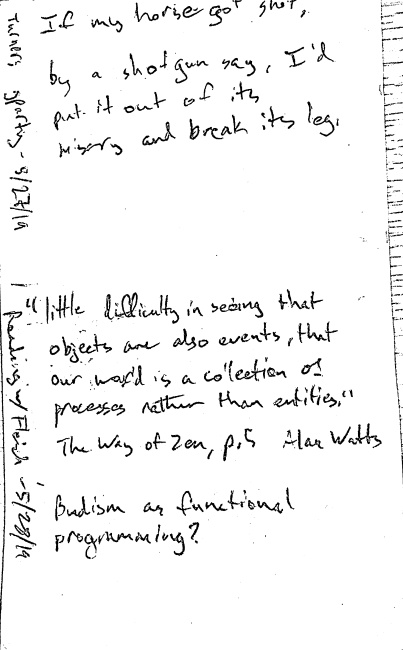 If my horse got shot,
by a shotgun say, I'd
put it out of its
misery and break its leg.
Turner's - 5/27/19
"little difficulty in seeing that
objects are also events, that
our world is a collection of
processes rather than entities."
The Way of Zen, p.5 Alan Watts
Budism as functional
programming?
Reading w/ - 5/28/19